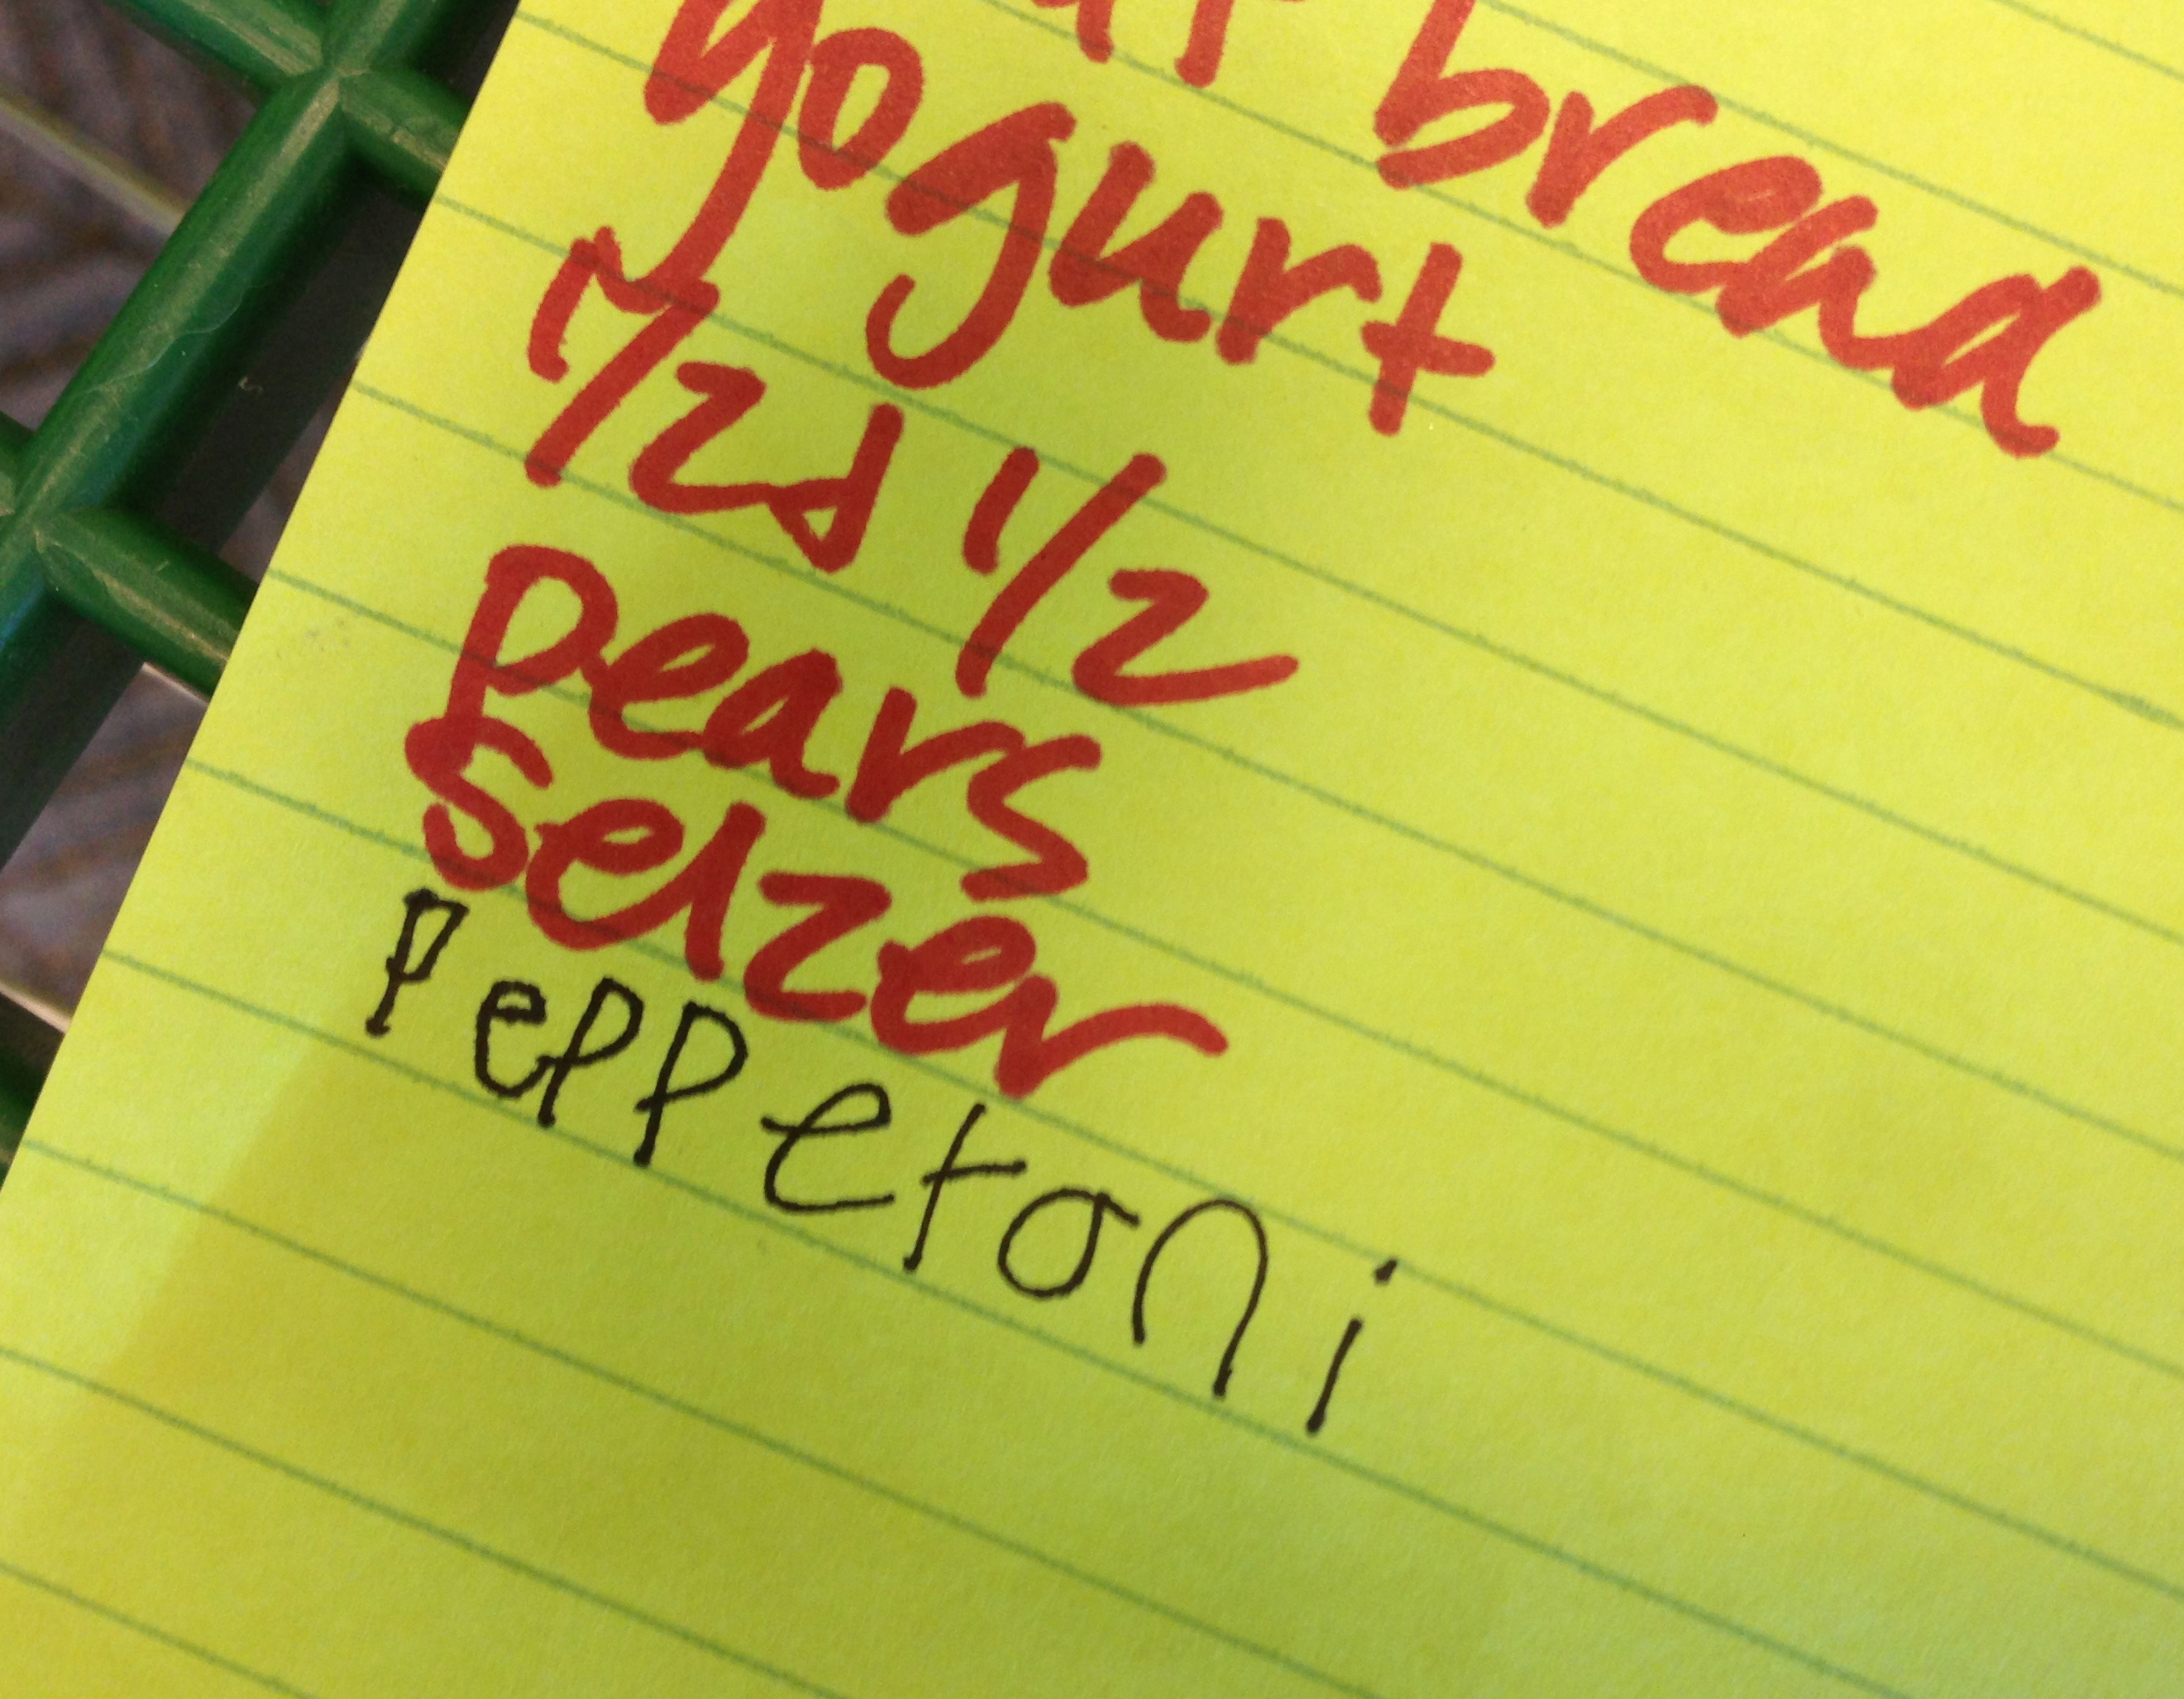 bread
yogurt
1/2 & 1/2
pears
selzer
Pepperoni